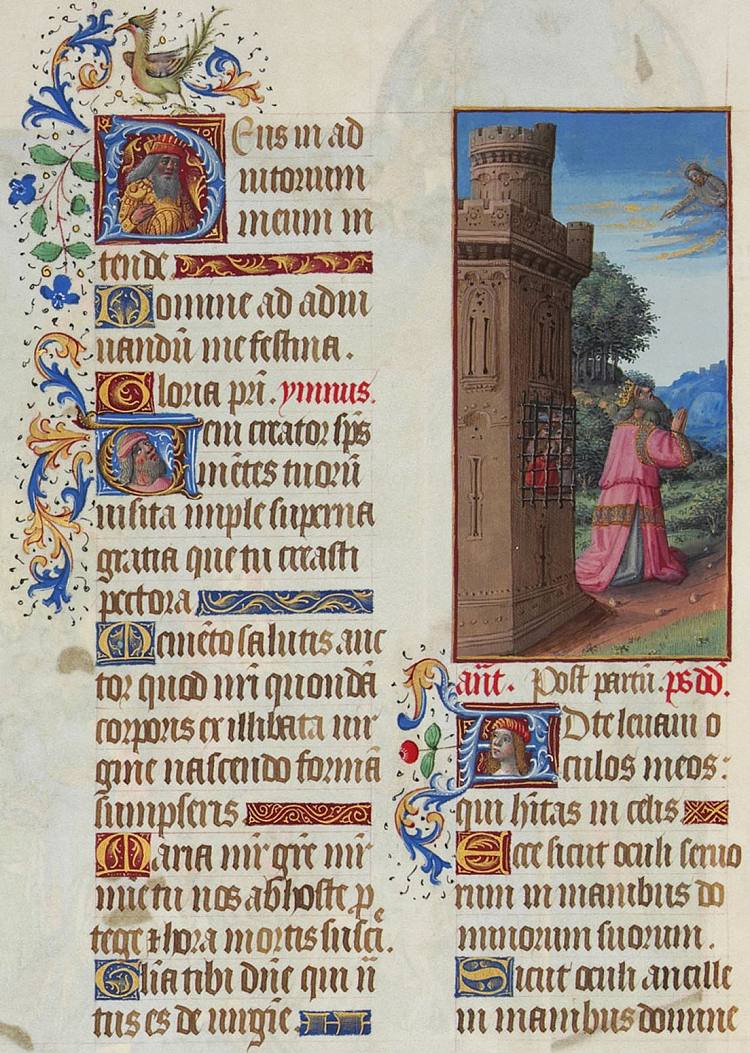 Deus in ad
iutorium
meum in
tende
Domine ad adiu
uandū me festina.
Gloria pri. ymnus.
Veni creator sps
mētes tuorū
uisita imple superna
gratia que tu creasti
pectora
Memēto salutis auc
tor quod nr̄i quondā
corporis ex illibata uir
gine nascendo formā
sumpseris.
Maria mr̄ gr̄e mr̄
mie tu nos ab hoste p
tege ⁊ hora mortis susci.
Gl̄ia tibi dn̄e qui n
tus es de uirgīe.
an̄t. Post partū. ps dd.
Ad te leuaui o
culos meos:
qui hītas in celis
Ecce sicut oculi seruo
rum in manibus do
minorum suorum.
Sicut oculi ancille
in manibus domine